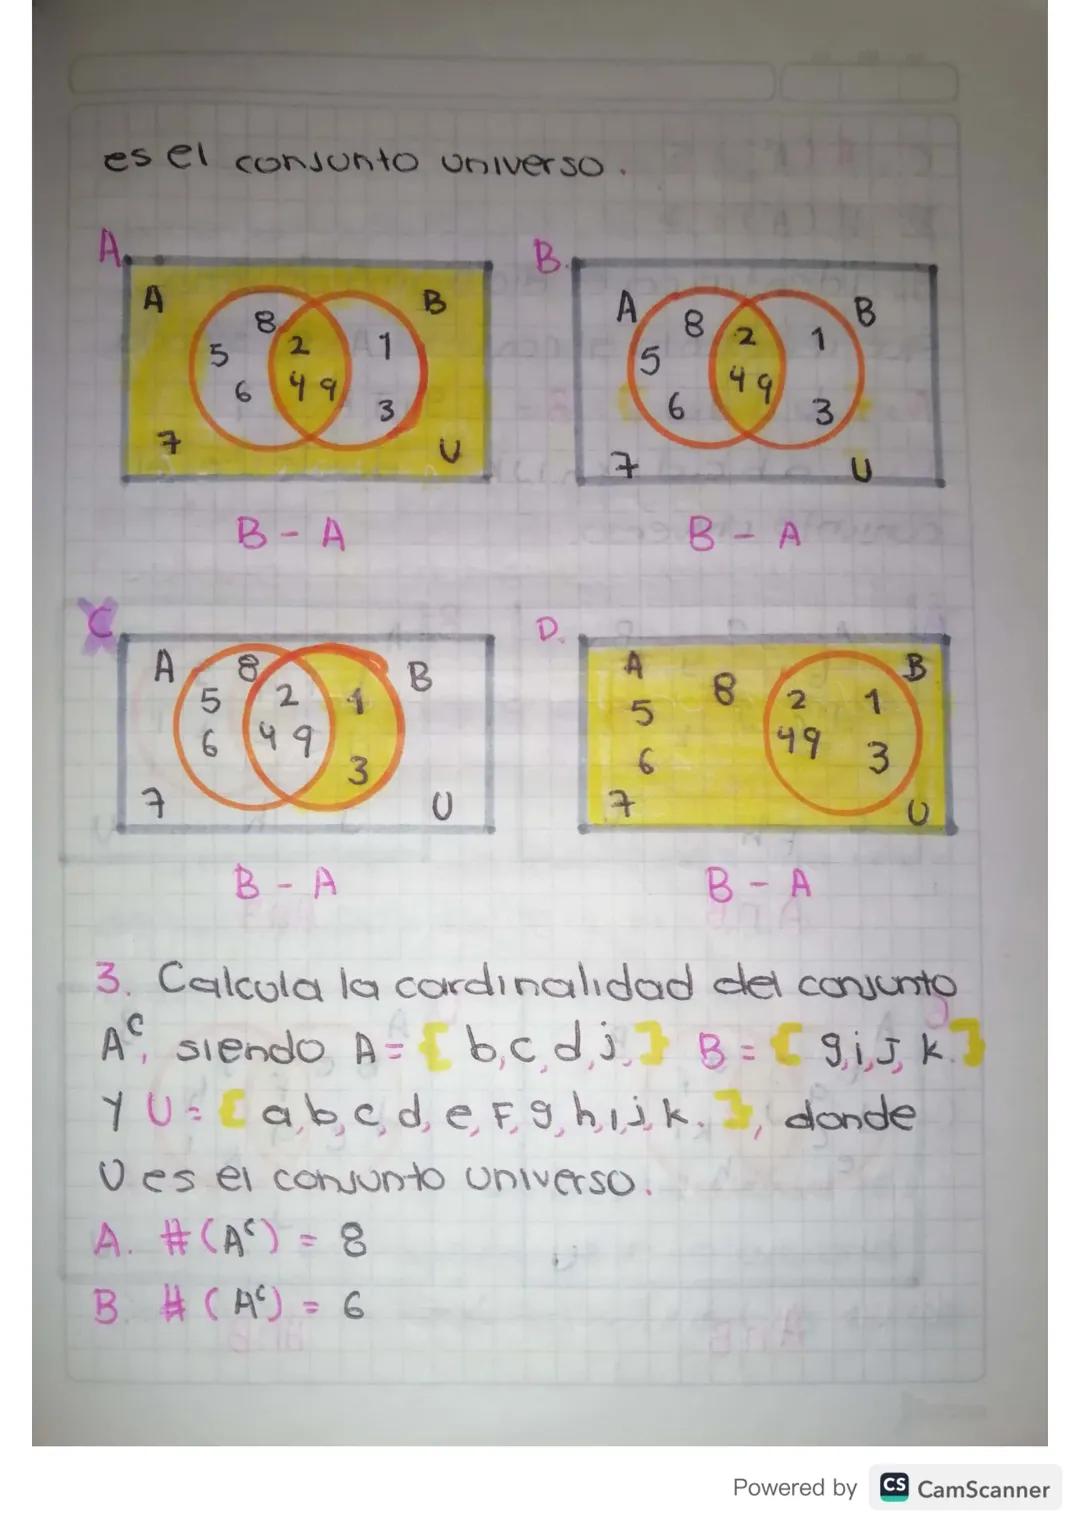 es el conjunto universo.
A.
A B
8
5 2 1
6 4 9 3
7 U
B - A
B.
A B
8 2 1
5 4 9
6 3
7 U
B - A
C.
A 8 B
5 2 1
6 4 9 3
7 U
B - A
D.
A 8 B
5 2 1
6 4 9 3
7 U
B - A
3. Calcula la cardinalidad del conjunto
Aᶜ, siendo A = { b, c, d, j, } B = { g, i, J, k. }
Y U = { a, b, c, d, e, F, g, h, i, j, k. }, donde
U es el conjunto universo.
A. #(Aᶜ) = 8
B. #(Aᶜ) = 6
Powered by CS CamScanner